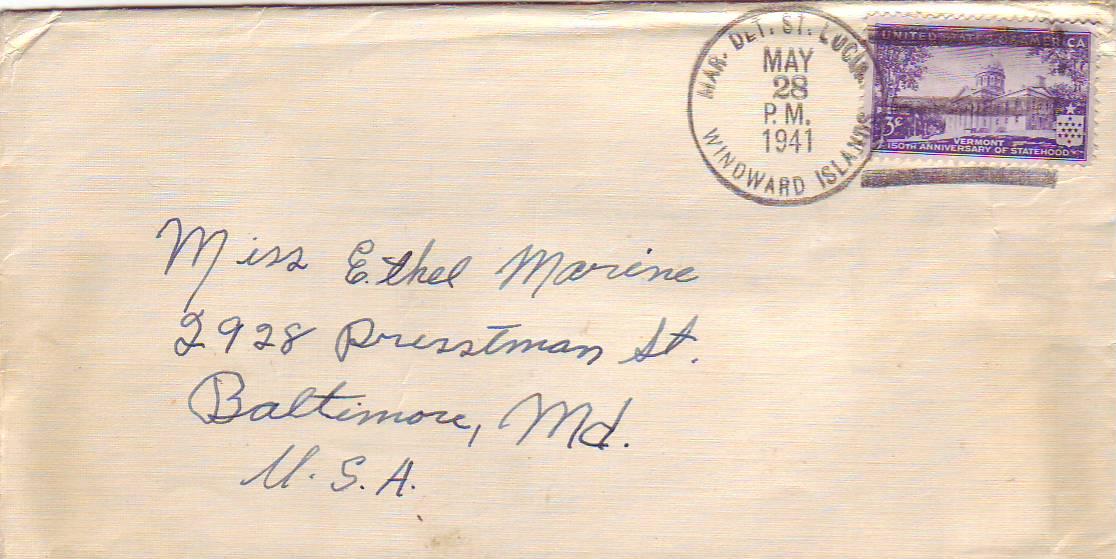 MAR. DET. ST. LUCIA,
MAY
28
P.M.
1941
WINDWARD ISLANDS
UNITED STATES OF AMERICA
3¢
VERMONT
150TH ANNIVERSARY OF STATEHOOD
Miss Ethel Marine
2928 Presstman St.
Baltimore, Md.
U.S.A.